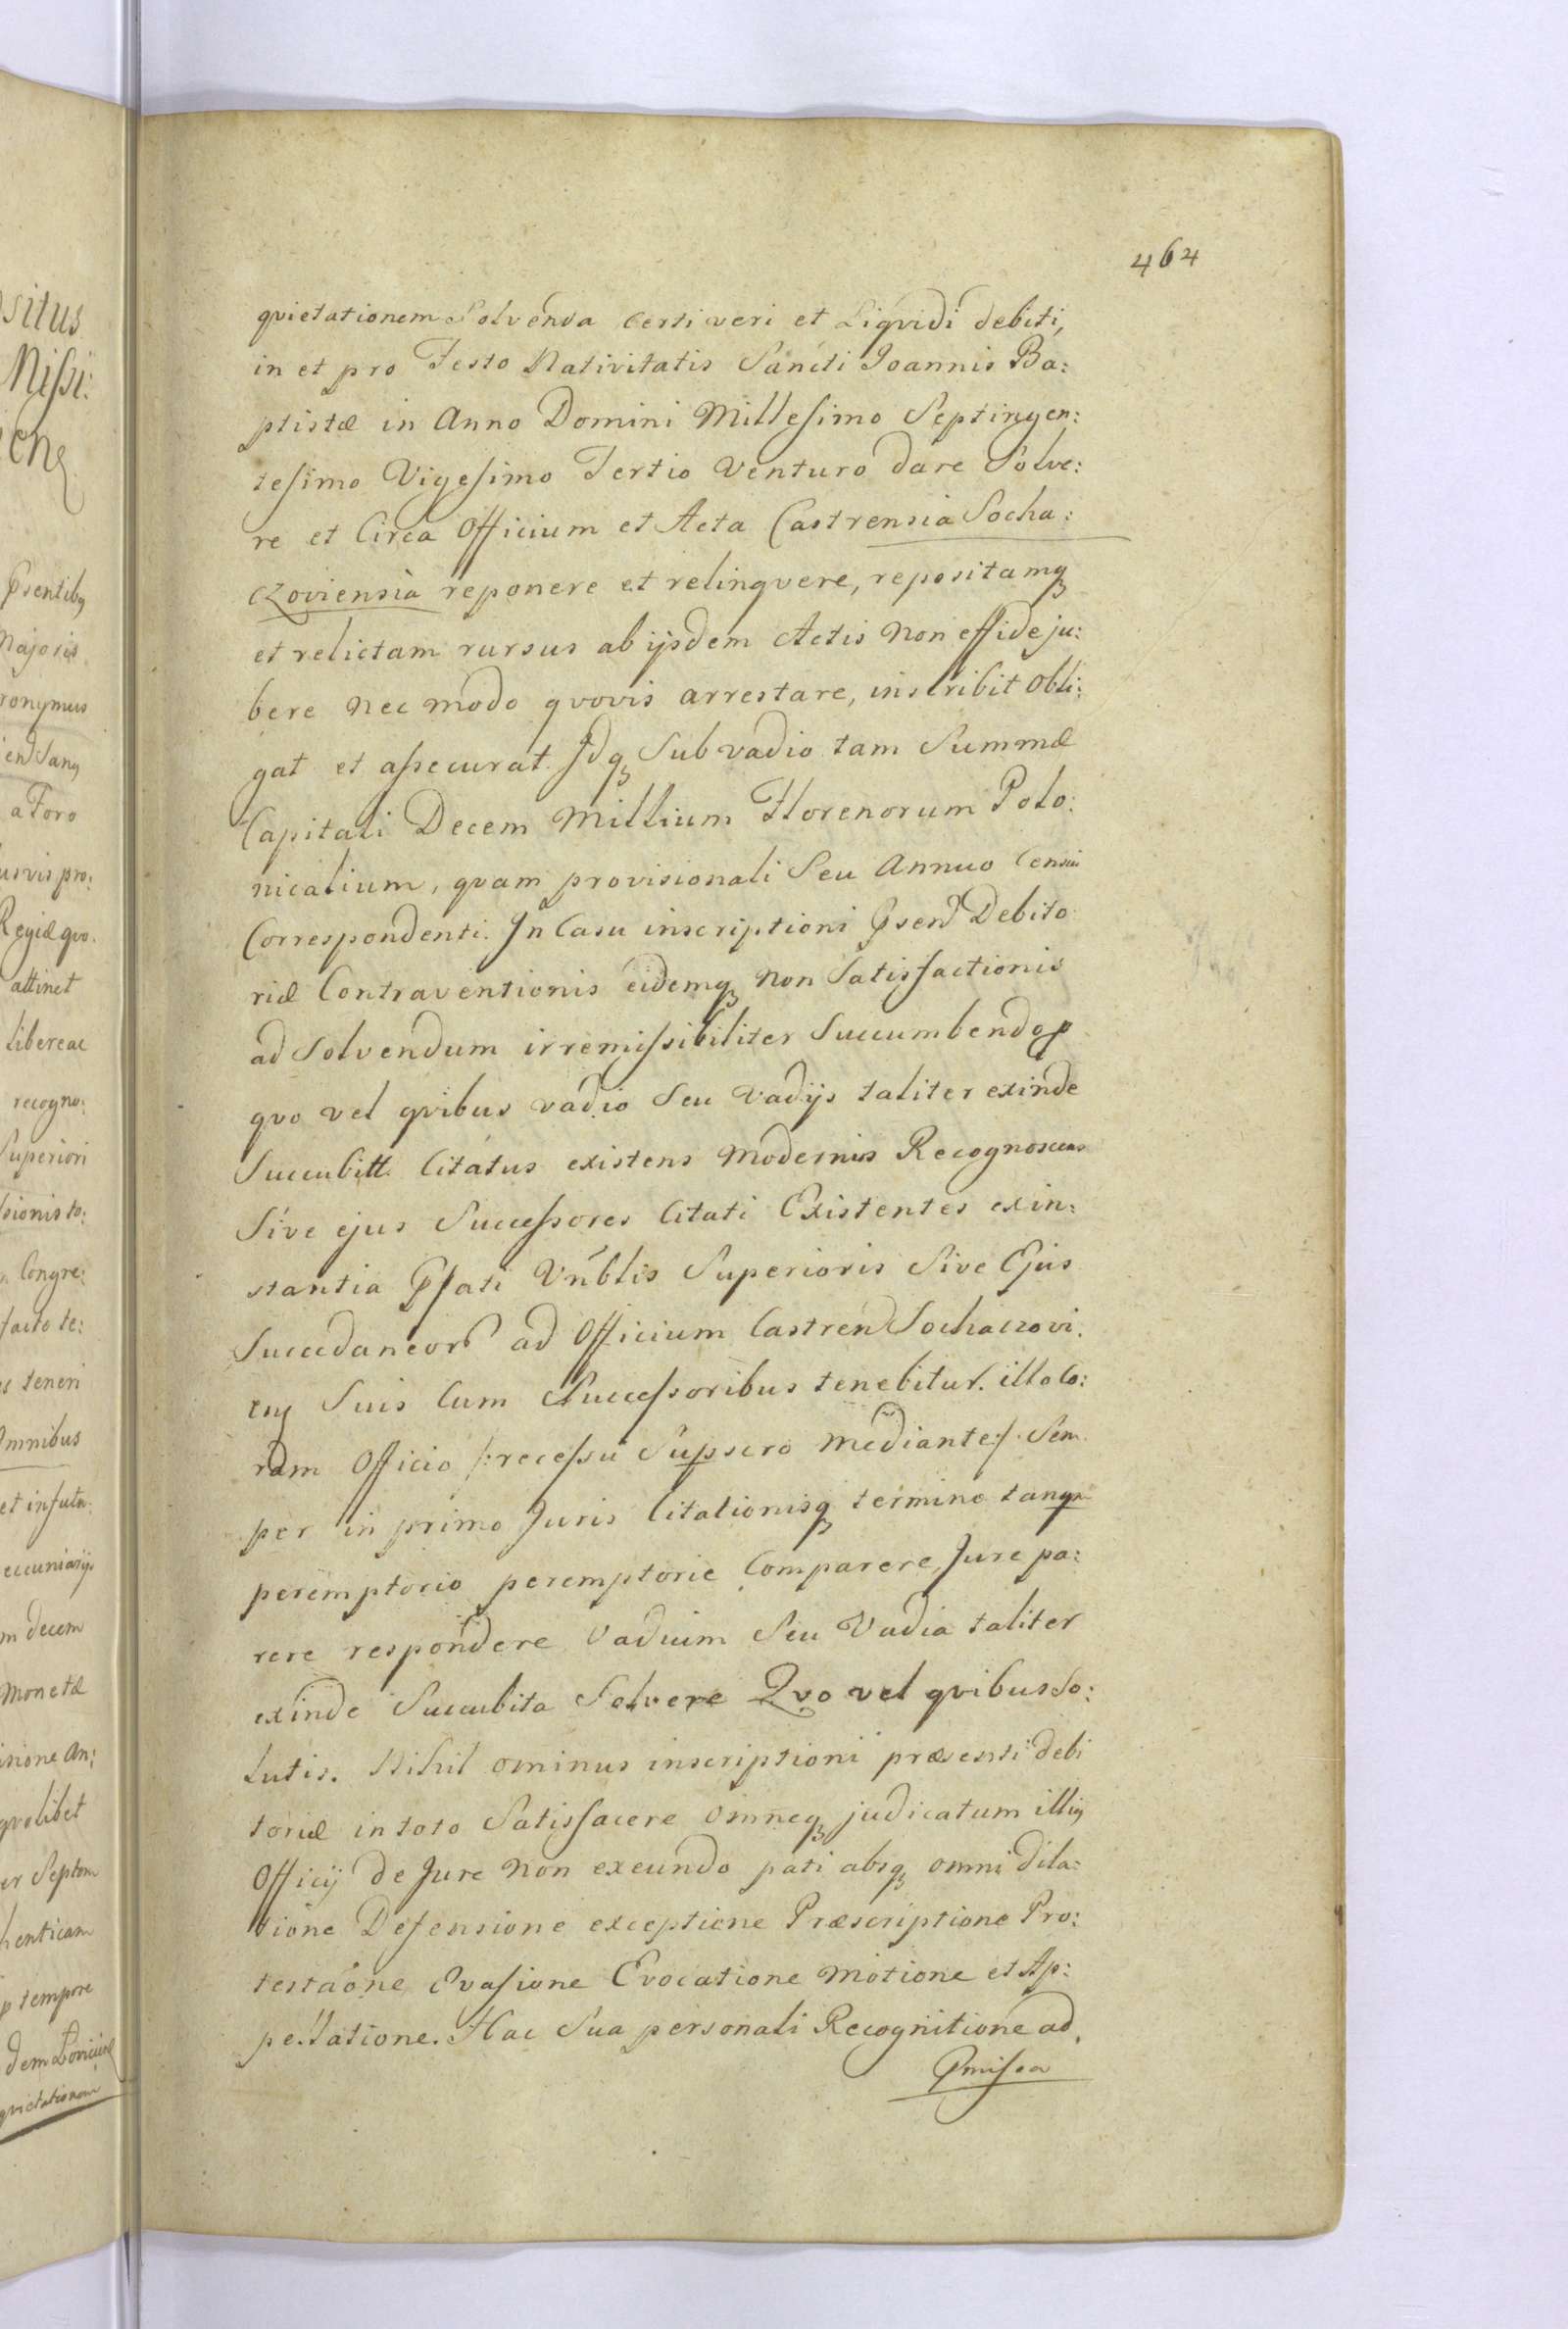 464
qvietationem Solvenda certi veri et Liqvidi debiti,
in et pro Festo Nativitatis Sancti Joannis Ba:
ptistæ in Anno Domini Millesimo Septingen:
tesimo Vigesimo Tertio Venturo dare Solve:
re et Circa Officium et Acta Castrensia Socha:
czoviensia reponere et relinqvere, repositamq
et relictam rursus ab ijsdem Actis non effideju:
bere nec modo qvovis arrestare, inscribit obli:
gat et assecurat. Idq Sub vadio tam Summæ
Capitali Decem Millium Florenorum Polo:
nicalium, qvam provisionali Seu Annuo Censui
Correspondenti. In Casu inscriptioni Psend Debito
riæ Contraventionis eidemq non Satisfactionis
ad Solvendum irremissibiliter Succumbendo p
qvo vel qvibus vadio Seu Vadijs taliter exinde
Succubitt. Citatus existens Modernus Recognoscens
Sive ejus Successores Citati Existentes ex in:
stantia Pfati Vnblis Superioris Sive Ejus
Succedaneor ad Officium Castren Sochaczovi.
Suis Cum Successoribus tenebitur. illo Co:
ram Officio /:recessu Supscro mediante:/ Sem
per in primo Juris Citationisq termino tanqm
peremptorio peremptorie Comparere, Jure pa:
rere respondere Vadium Seu Vadia taliter
exinde Succubita Solvere Qvo vel qvibus So:
lutis. Nihil ominus inscriptioni præsenti debi
toriæ in toto Satisfacere omneq judicatum illig
Officij de Jure non exeundo pati absq omni dila:
tione Defensione exceptione Præscriptione Pro:
testaone Evasione Evocatione Motione et Ap:
pellatione. Hac Sua personali Recognitione ad.
Pmissa